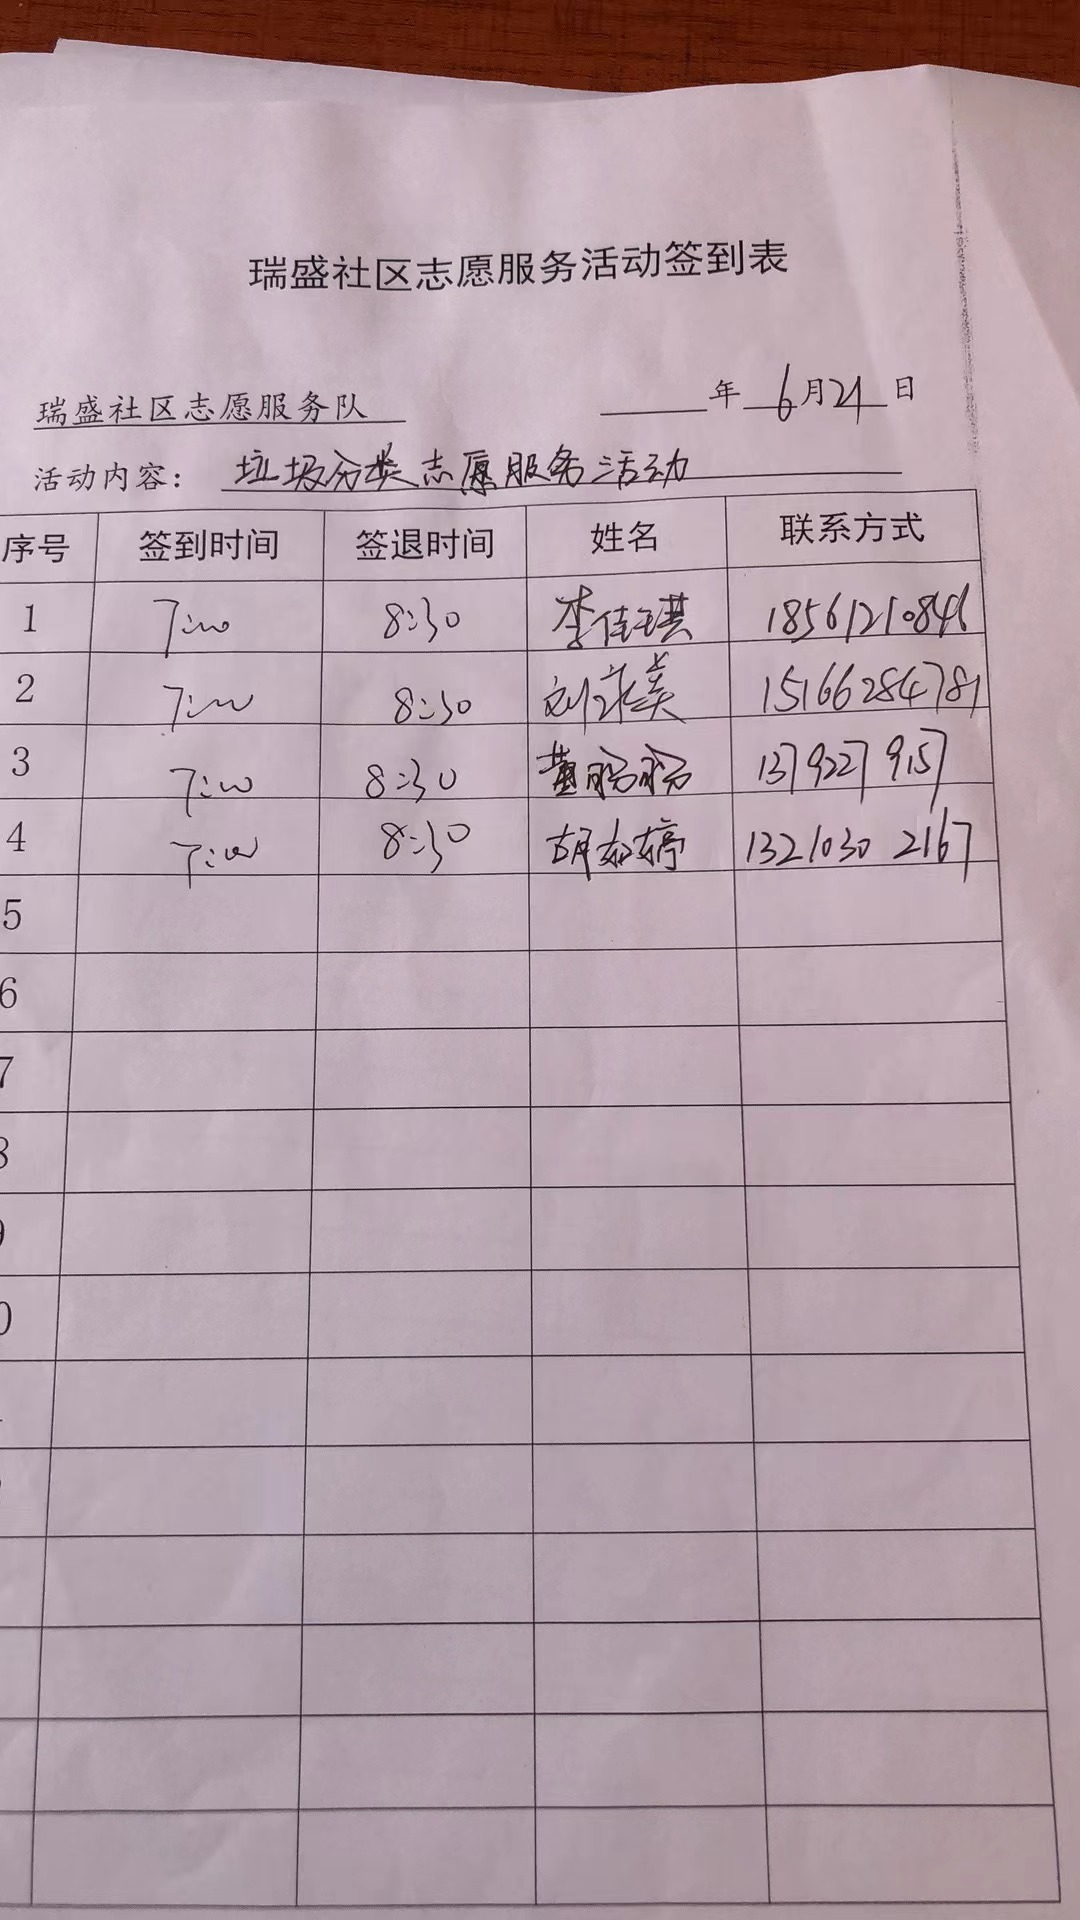 瑞盛社区志愿服务活动签到表
瑞盛社区志愿服务队 年 6月21日
活动内容：垃圾分类志愿服务活动
序号 签到时间 签退时间 姓名 联系方式
1 7:00 8:30 李佳琪 18561210846
2 7:00 8:30 刘永美 15166284781
3 7:00 8:30 董盼盼 13792279157
4 7:00 8:30 胡如婷 1321030 2167
5
6
7
8
9
0